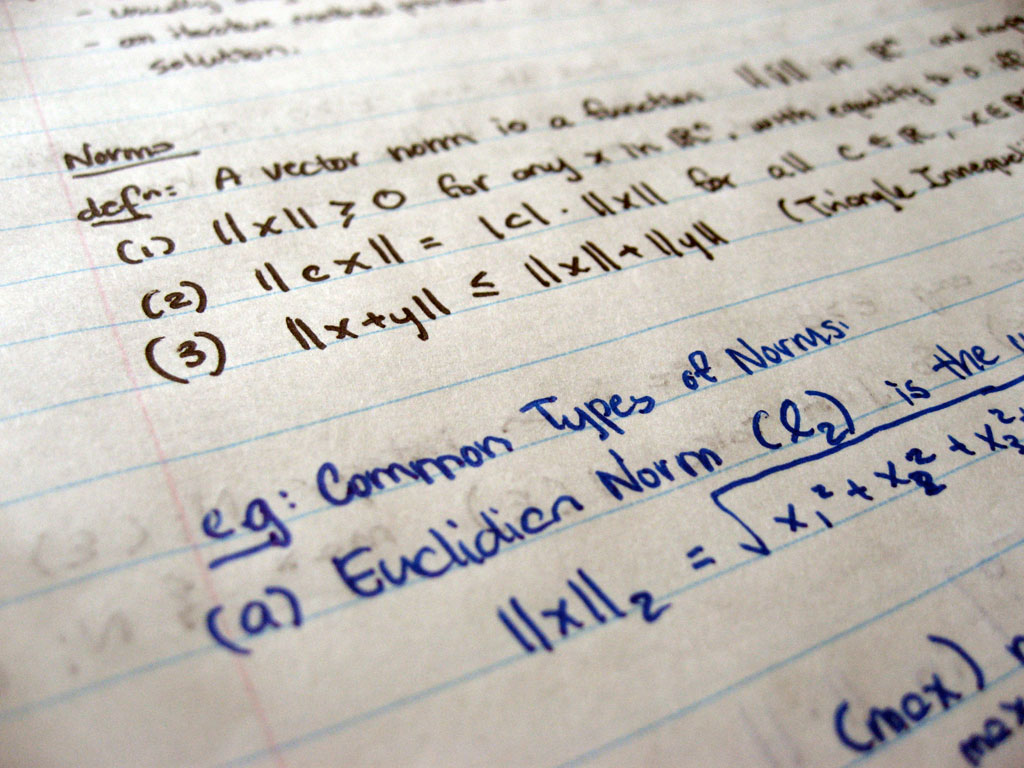 - usually
- an iterative method
solution.
Norms
defn: A vector norm is a function ||y|| in ℝⁿ and
(1) ||x|| ≥ 0 for any x in ℝⁿ, with equality
(2) ||cx|| = |c| · ||x|| for all c ∈ ℝ, x ∈ ℝ
(3) ||x+y|| ≤ ||x|| + ||y|| (Triangle Innequali
eg: Common Types of Norms.
(a) Euclidian Norm (ℓ₂) is the
||x||₂ = √x₁² + x₂² + x₃²
(max)
max